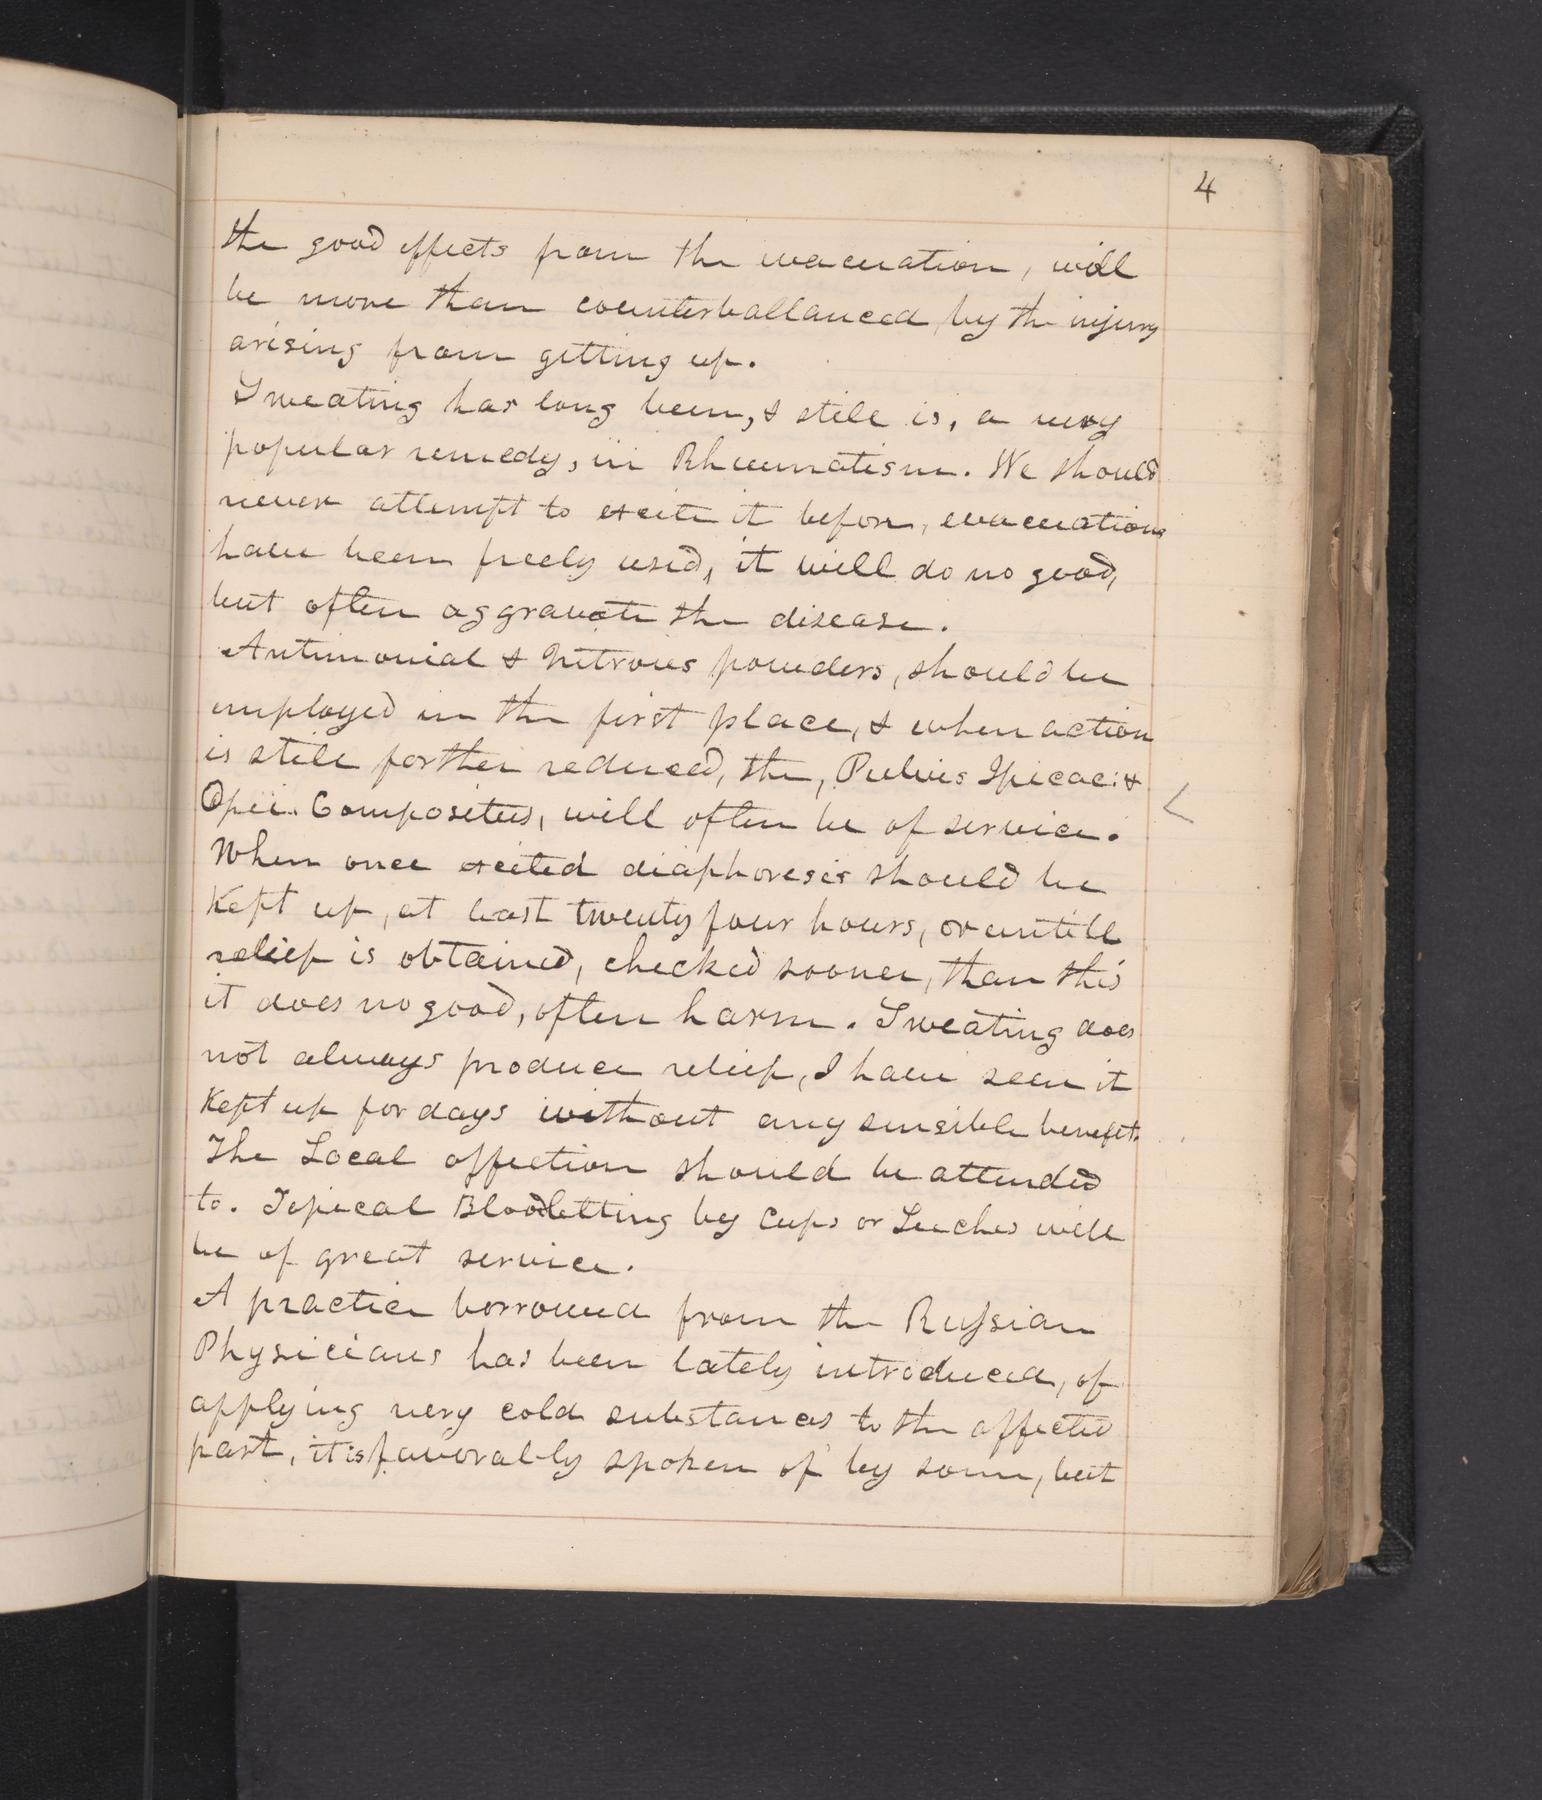 4
the good effects from the evacuation, will
be more than counterballanced by the injury
arising from getting up.
Sweating has long been, & still is, a very
popular remedy, in Rheumatism. We should
never attempt to excite it before, evacuations
have been freely used, it will do no good,
but often aggravate the disease.
Antimonial & Nitrous powders, should be
employed in the first place, & when action
is still forther reduced, the, Pulvis Ipicac: &
Opii. Compositus, will often be of service.
When once excited diaphoresis should be
Kept up, at least twenty four hours, or untill
relief is obtained, checked sooner, than this
it does no good, often harm. Sweating does
not always produce relief, I have seen it
Kept up for days without any sensible benefit.
The Local affection should be attended
to. Topical Bloodletting by Cups or Leeches will
be of great service.
A practice borrowed from the Russian
Physicians has been lately introduced, of
applying very cold substances to the affected
part, it is favorably spoken of by some, but